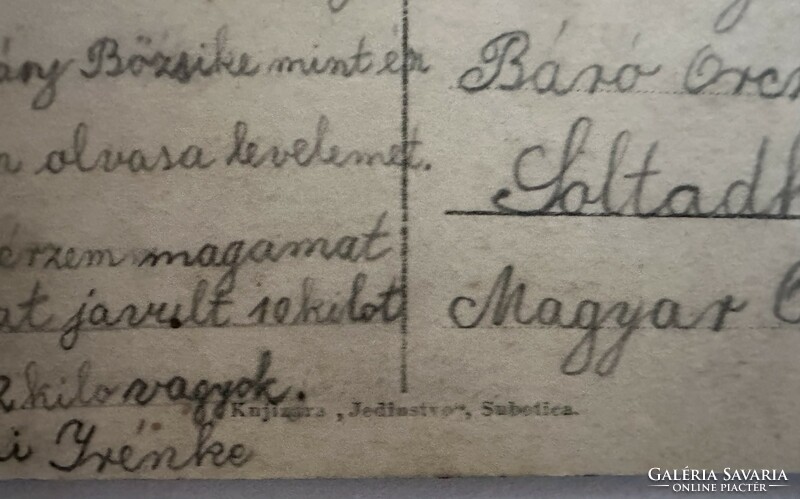 ány Bözsike mint én
n olvasa levelemet.
érzem magamat
at javult 10 kilot
2 kilo vagyok.
i Irénke
Báró Orc
Soltadk
Magyar O
Knjižara „Jedinstvo", Subotica.
GALÉRIA SAVARIA
ONLINE PIACTÉR